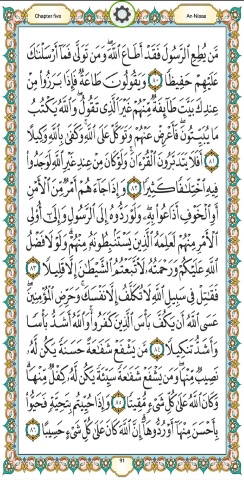 Chapter five
An-Nisaa
مَّن يُطِعِ ٱلرَّسُولَ فَقَدْ أَطَاعَ ٱللَّهَ ۖ وَمَن تَوَلَّىٰ فَمَآ أَرْسَلْنَٰكَ
عَلَيْهِمْ حَفِيظًا ٨٠ وَيَقُولُونَ طَاعَةٌ فَإِذَا بَرَزُوا۟ مِنْ
عِندِكَ بَيَّتَ طَآئِفَةٌ مِّنْهُمْ غَيْرَ ٱلَّذِى تَقُولُ ۖ وَٱللَّهُ يَكْتُبُ
مَا يُبَيِّتُونَ ۖ فَأَعْرِضْ عَنْهُمْ وَتَوَكَّلْ عَلَى ٱللَّهِ ۚ وَكَفَىٰ بِٱللَّهِ وَكِيلًا
٨١ أَفَلَا يَتَدَبَّرُونَ ٱلْقُرْءَانَ ۚ وَلَوْ كَانَ مِنْ عِندِ غَيْرِ ٱللَّهِ لَوَجَدُوا۟
فِيهِ ٱخْتِلَٰفًا كَثِيرًا ٨٢ وَإِذَا جَآءَهُمْ أَمْرٌ مِّنَ ٱلْأَمْنِ
أَوِ ٱلْخَوْفِ أَذَاعُوا۟ بِهِۦ ۖ وَلَوْ رَدُّوهُ إِلَى ٱلرَّسُولِ وَإِلَىٰٓ أُو۟لِى
ٱلْأَمْرِ مِنْهُمْ لَعَلِمَهُ ٱلَّذِينَ يَسْتَنۢبِطُونَهُۥ مِنْهُمْ ۗ وَلَوْلَا فَضْلُ
ٱللَّهِ عَلَيْكُمْ وَرَحْمَتُهُۥ لَٱتَّبَعْتُمُ ٱلشَّيْطَٰنَ إِلَّا قَلِيلًا ٨٣
فَقَٰتِلْ فِى سَبِيلِ ٱللَّهِ لَا تُكَلَّفُ إِلَّا نَفْسَكَ ۚ وَحَرِّضِ ٱلْمُؤْمِنِينَ ۖ
عَسَى ٱللَّهُ أَن يَكُفَّ بَأْسَ ٱلَّذِينَ كَفَرُوا۟ ۚ وَٱللَّهُ أَشَدُّ بَأْسًا
وَأَشَدُّ تَنكِيلًا ٨٤ مَّن يَشْفَعْ شَفَٰعَةً حَسَنَةً يَكُن لَّهُۥ
نَصِيبٌ مِّنْهَا ۖ وَمَن يَشْفَعْ شَفَٰعَةً سَيِّئَةً يَكُن لَّهُۥ كِفْلٌ مِّنْهَا ۗ
وَكَانَ ٱللَّهُ عَلَىٰ كُلِّ شَىْءٍ مُّقِيتًا ٨٥ وَإِذَا حُيِّيتُم بِتَحِيَّةٍ فَحَيُّوا۟
بِأَحْسَنَ مِنْهَآ أَوْ رُدُّوهَآ ۗ إِنَّ ٱللَّهَ كَانَ عَلَىٰ كُلِّ شَىْءٍ حَسِيبًا ٨٦
91